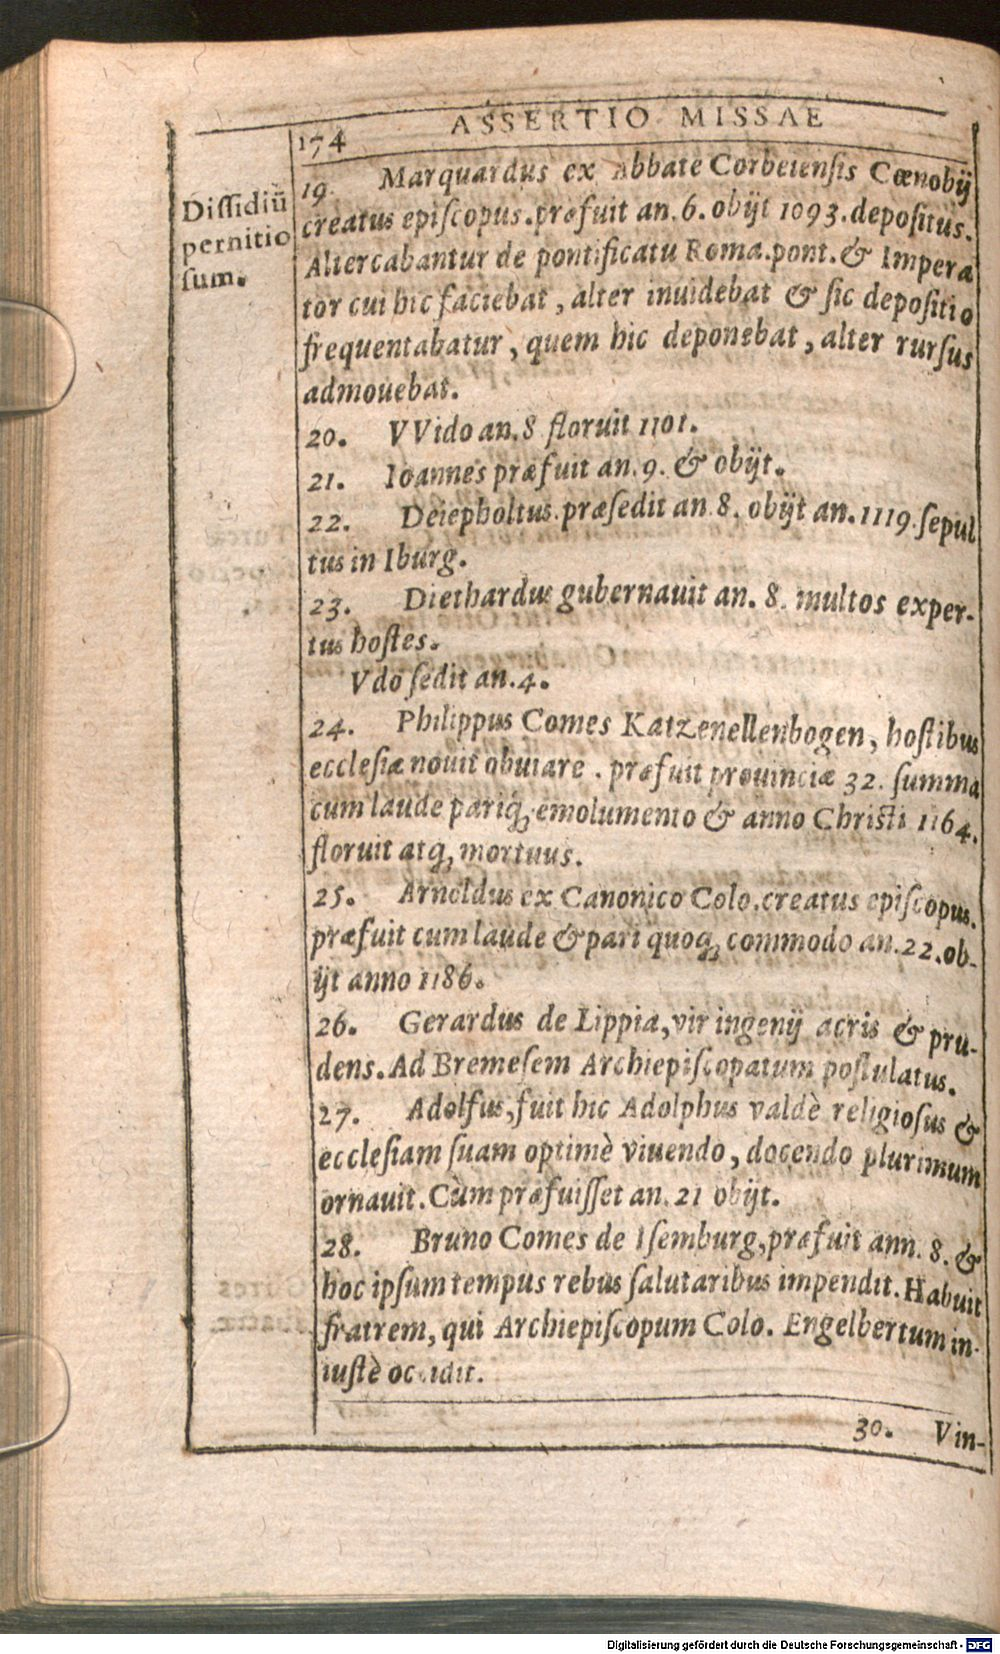 174
ASSERTIO MISSAE
Dißidiū
pernitio
ſum.
19. Marquardus ex Abbate Corbeienſis Cœnobij
creatus epiſcopus. præfuit an. 6. obijt 1093. depoſitus.
Altercabantur de pontificatu Roma. pont. & Impera
tor cui hic faciebat, alter inuidebat & ſic depoſitio
frequentabatur, quem hic deponebat, alter rurſus
admouebat.
20. VVido an. 8 floruit 1101.
21. Ioannes præfuit an. 9. & obijt.
22. Deiepholtus. præſedit an. 8. obijt an. 1119. ſepul
tus in Iburg.
23. Diethardus gubernauit an. 8. multos exper-
tus hoſtes.
Vdo ſedit an. 4.
24. Philippus Comes Katzenellenbogen, hoſtibus
eccleſiæ nouit obuiare. præfuit prouinciæ 32. ſumma
cum laude pariq́; emolumento & anno Chriſti 1164.
floruit atq́; mortuus.
25. Arnoldus ex Canonico Colo. creatus epiſcopus.
præfuit cum laude & pari quoq; commodo an. 22. ob-
ijt anno 1186.
26. Gerardus de Lippia, vir ingenij acris & pru-
dens. Ad Bremeſem Archiepiſcopatum poſtulatus.
27. Adolfus, fuit hic Adolphus valdè religioſus &
eccleſiam ſuam optimè viuendo, docendo plurimum
ornauit. Cùm præfuiſſet an. 21 obijt.
28. Bruno Comes de Iſemburg, præfuit ann. 8. &
hoc ipſum tempus rebus ſalutaribus impendit. Habuit
fratrem, qui Archiepiſcopum Colo. Engelbertum in-
iuſtè occidit.
30. Vin-
Digitalisierung gefördert durch die Deutsche Forschungsgemeinschaft - DFG